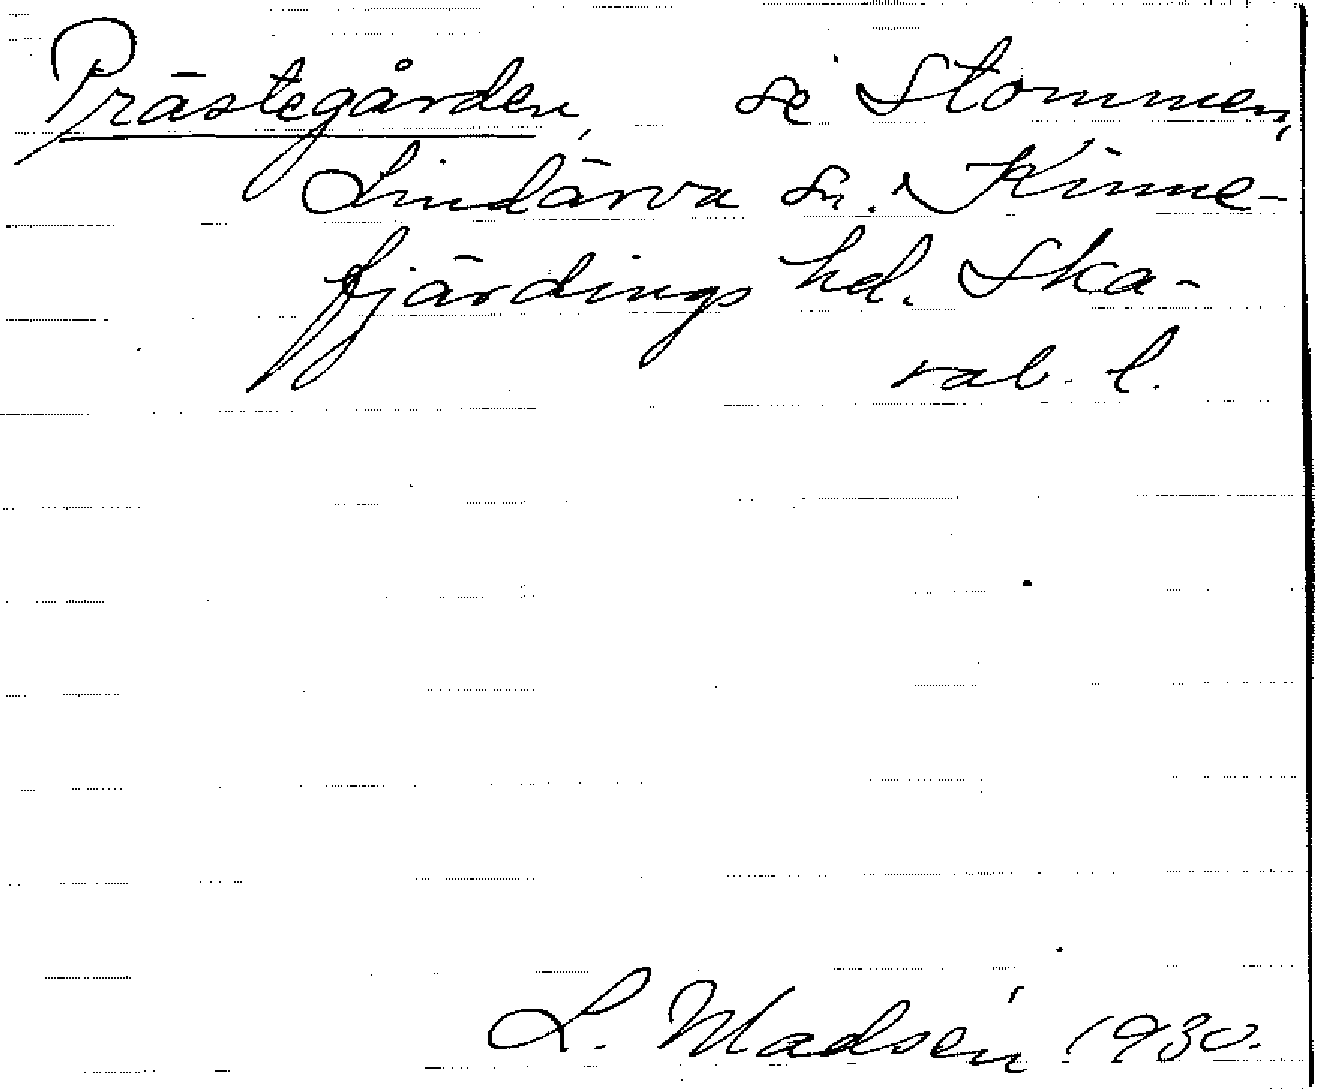 Prästegården, se Stommen,
Lindärva sn. Kinne-
fjärdings hd. Ska-
rab. l.
L. Madsén 1930.